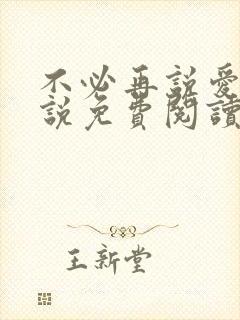 不必再說愛
說免費閱讀
王新堂